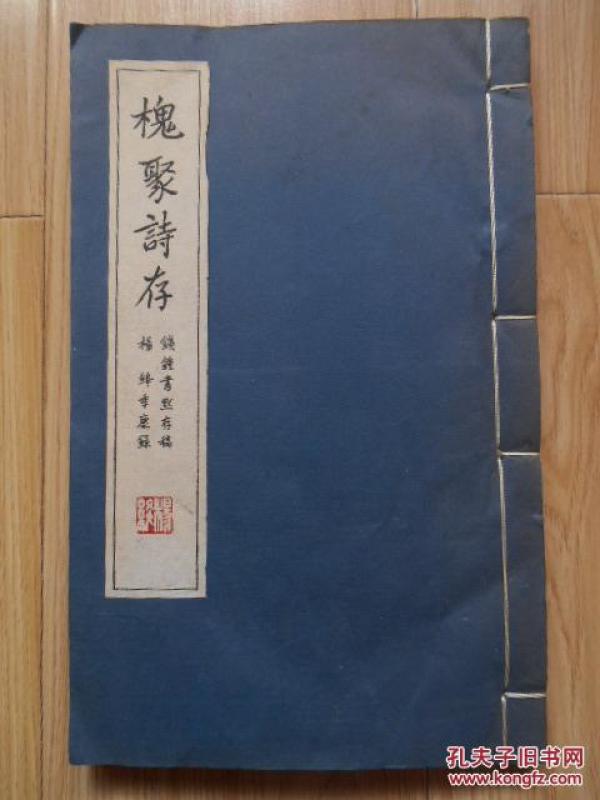 槐聚詩存
錢鍾書默存稿
楊絳季康錄
孔夫子旧书网
www.kongfz.com